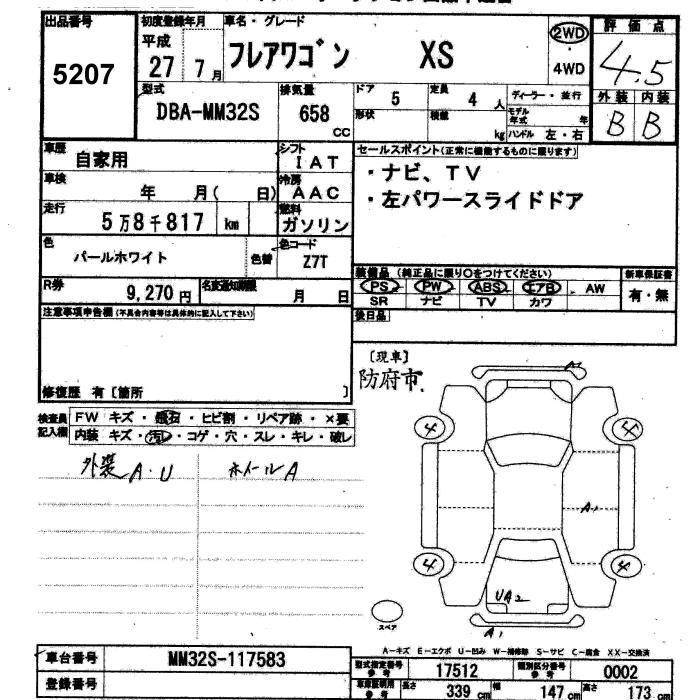 出品番号
5207
初度登録年月
平成
27年 7月
車名・グレード
フレアワゴン XS
2WD
4WD
評価点
4.5
外装 内装
B B
型式
DBA-MM32S
排気量
658 CC
ドア 5
定員 4 人
ディーラー・並行
形状
積載 kg
モデル年式 年
ハンドル 左・右
車歴
自家用
シフト
IAT
車検
年 月( 日)
冷房
AAC
走行
5万8千817 km
燃料
ガソリン
色
パールホワイト
色替
色コード
Z7T
R券
9,270円
名変通知期限
月 日
セールスポイント(正常に機能するものに限ります)
・ナビ、TV
・左パワースライドドア
装備品 (純正品に限り○をつけてください)
新車保証書
PS PW ABS エアB AW
SR ナビ TV カワ
有・無
後日品
注意事項申告欄(不具合内容等は具体的に記入して下さい)
修復歴 有〔箇所 〕
〔現車〕
防府市
検査員記入欄
FW キズ・飛石・ヒビ割・リペア跡・×要
内装 キズ・汚レ・コゲ・穴・スレ・キレ・破レ
外装 A・U ホイールA
A1
4 4
A1
4 4
UA2
スペア
A1
A-キズ E-エクボ U-凹み W-補修跡 S-サビ C-腐食 XX-交換済
車台番号
MM32S-117583
登録番号
型式指定番号
参考
17512
類別区分番号
参考
0002
車庫証明用
参考
長さ 339 cm
幅 147 cm
高さ 173 cm